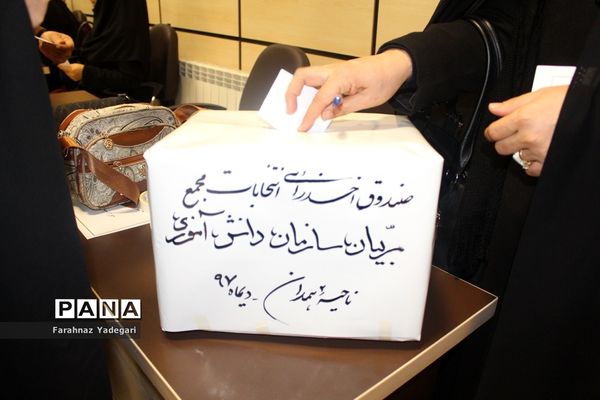 صندوق اخذ رای انتخابات مجمع
مربّیان سازمان دانش آموزی
ناحیه ۲ همدان - دیماه ۹۷
PANA
Farahnaz Yadegari